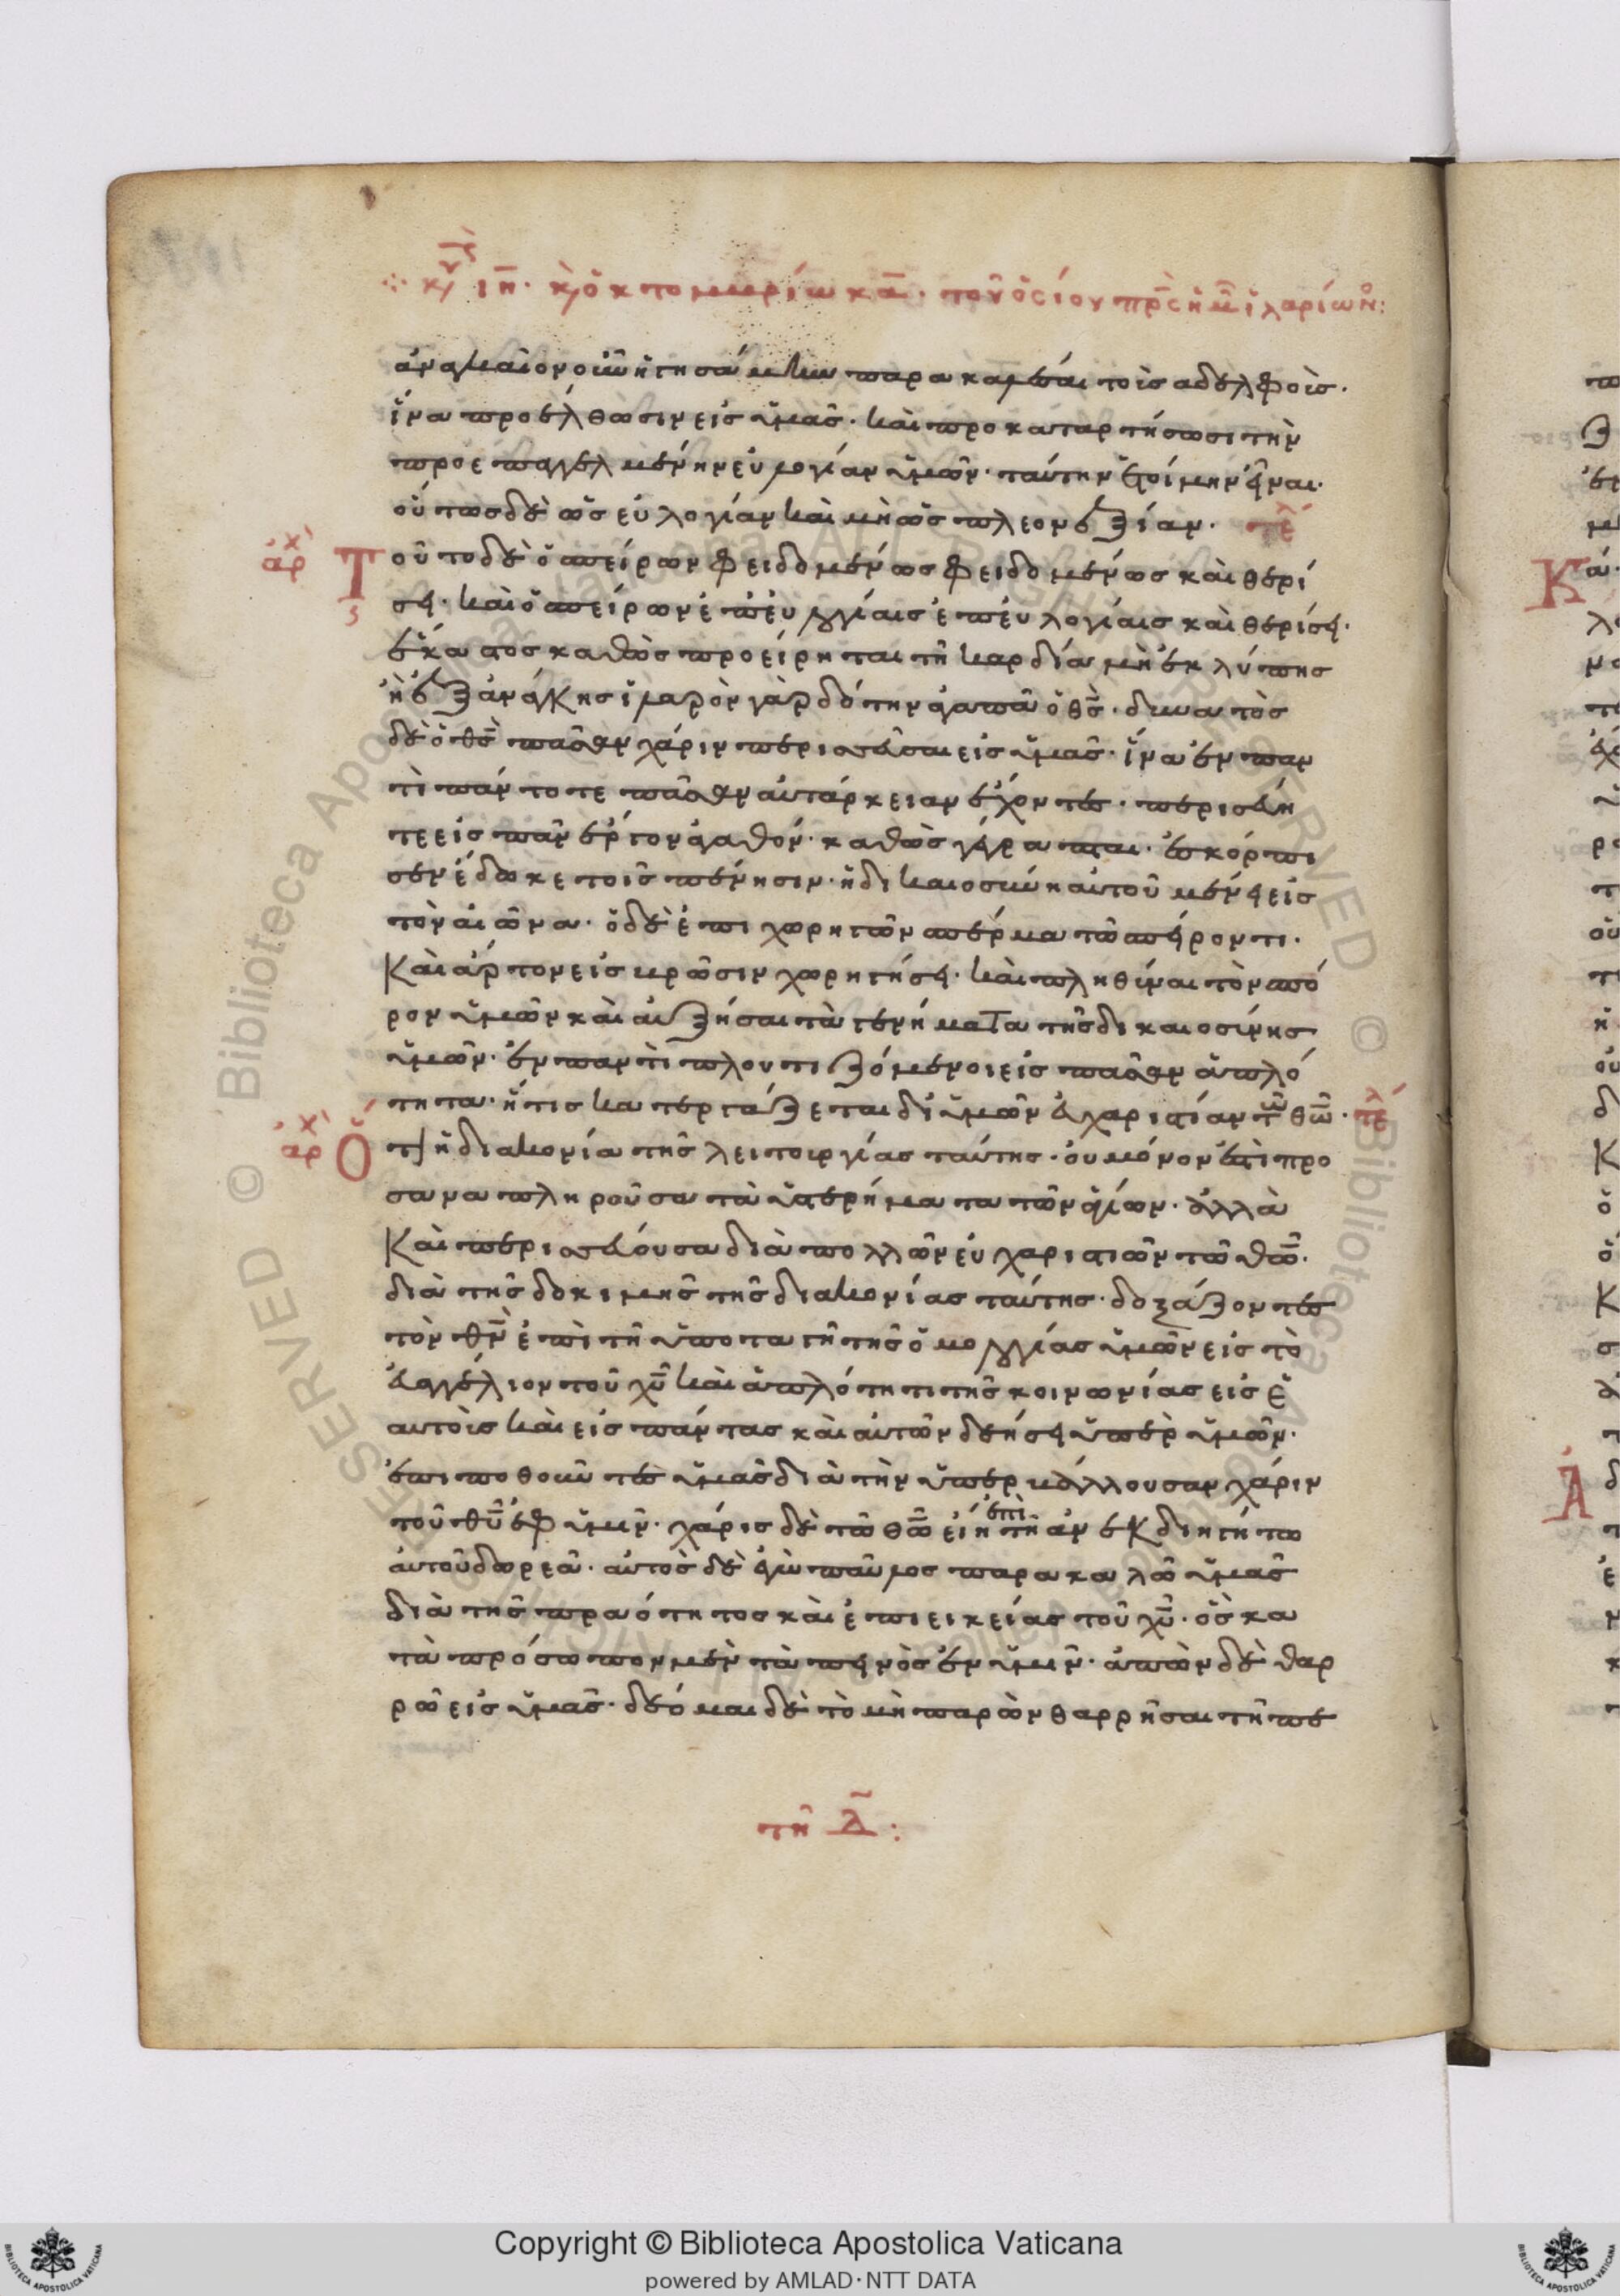 κυ ιη· κ, ὀκτομβρίω κα· τοῦ ὁσίου πρς ἡμ ἱλαρίων:
ἀναγκαῖον οὖν ἡγησάμην παρακαλέσαι τοὺς αδελφοὺς·
ἵνα προέλθωσιν εἰς ὑμᾶς· καὶ προκαταρτήσωσι τὴν
προεπαγγελμένην εὐλογίαν ὑμῶν· ταύτην ἑτοίμην εἶναι·
οὕτως δὲ ὡς εὐλογίαν καὶ μὴ ὡς πλεονεξίαν· τέλ
ἀρχ Τοῦτο δὲ ὁ σπείρων φειδομένως φειδομένως καὶ θερί
σει· καὶ ὁ σπείρων ἐπ εὐλογίαις ἐπ εὐλογίαις καὶ θερίσει·
ἕκαστος καθὼς προείρηται τῆ καρδία μὴ ἐκ λύπης
ἢ ἐξ ἀνάγκης ἱλαρὸν γὰρ δότην ἀγαπᾶ ὁ θς· δυνατὸς
δὲ ὁ θς πᾶσαν χάριν περισσεῦσαι εἰς ὑμᾶς· ἵνα ἐν παν
τὶ πάντοτε πᾶσαν αὐτάρκειαν ἔχοντες· περισσεύη
τε εἰς πᾶν ἔργον ἀγαθόν· καθὼς γέγραπται· ἐσκόρπι
σεν ἔδωκε τοῖς πένησιν· ἡ δικαιοσύνη αὐτοῦ μένει εἰς
τὸν αἰῶνα· ὁ δὲ ἐπιχορηγῶν σπέρμα τῶ σπείροντι·
Καὶ ἄρτον εἰς βρῶσιν χορηγήσει· καὶ πληθύναι τὸν σπό
ρον ὑμῶν καὶ αὐξήσαι τὰ γενήματα τῆς δικαιοσύνης
ὑμῶν· ἐν παντὶ πλουτιζόμενοι εἰς πᾶσαν ἁπλό
τητα· ἥτις κατεργάζεται δι ὑμῶν εὐχαριστίαν τῶ θῶ· τέλ
ἀρχ Ὅτι ἡ διακονία τῆς λειτουργίας ταύτης· οὐ μόνον ἐστὶ προ
σαναπληροῦσα τὰ ὑστερήματα τῶν ἁγίων· ἀλλὰ
Καὶ περισσεύουσα διὰ πολλῶν εὐχαριστιῶν τῶ θῶ·
διὰ τῆς δοκιμῆς τῆς διακονίας ταύτης· δοξάζοντες
τὸν θν ἐπὶ τῆ ὑποταγῆ τῆς ὁμολογίας ὑμῶν εἰς τὸ
εὐαγγέλιον τοῦ χυ καὶ ἁπλότητι τῆς κοινωνίας εἰς ἑ
αυτοὺς καὶ εἰς πάντας καὶ αὐτῶν δεήσει ὑπὲρ ὑμῶν·
ἐπιποθούντες ὑμᾶς διὰ τὴν ὑπερβάλλουσαν χάριν
τοῦ θυ ἐφ ὑμῖν· χάρις δὲ τῶ θῶ εἴη ἐπὶ τῆ ἀνεκδιηγήτω
ἀυτοῦ δωρεᾶ· αὐτὸς δὲ ἐγὼ παῦλος παρακαλῶ ὑμᾶς
διὰ τῆς πραότητος καὶ ἐπιεικείας τοῦ χυ· ὃς κα
τὰ πρόσωπον μὲν ταπεινὸς ἐν ὑμῖν· ἀπὼν δὲ θαρ
ρῶ εἰς ὑμᾶς· δέομαι δὲ τὸ μὴ παρὼν θαρρῆσαι τῆ πε
τῆ Δ: